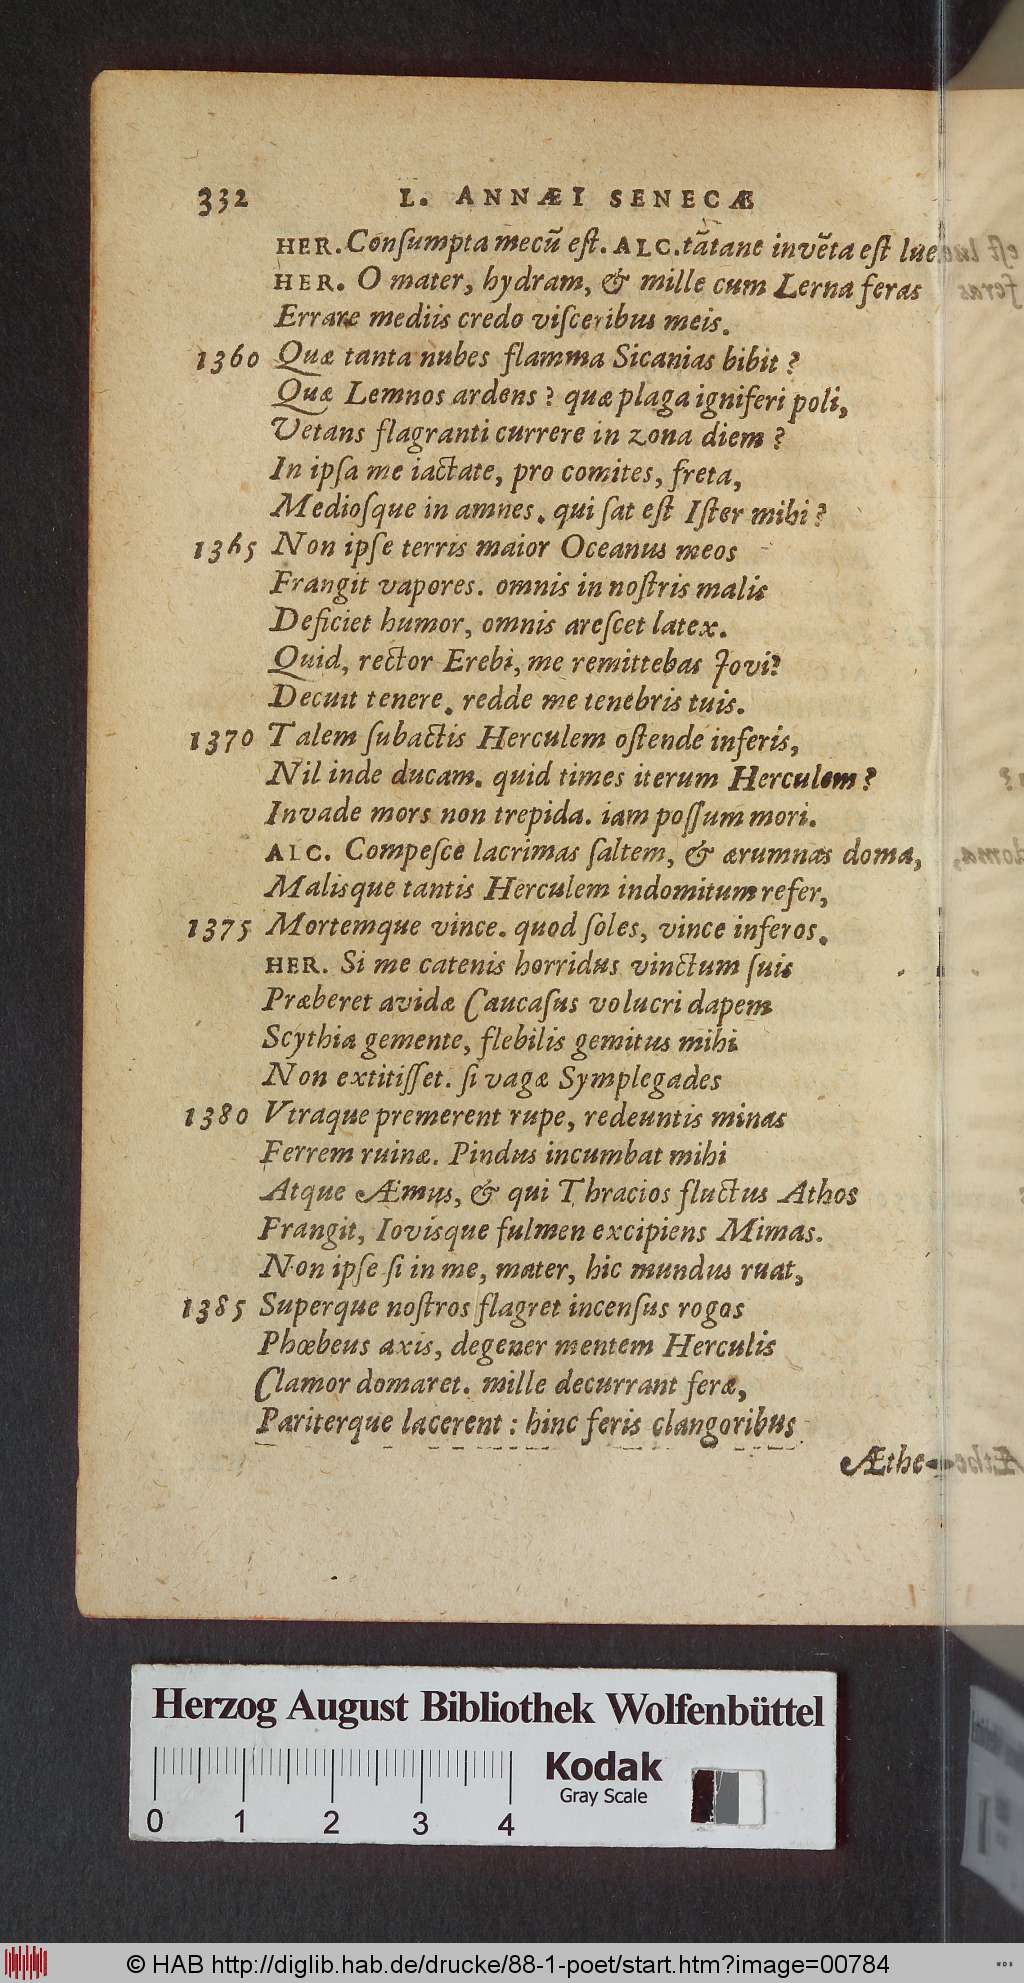 332 L. ANNÆI SENECÆ
HER. Conſumpta mecũ eſt. ALC. tãtane invẽta eſt lue.
HER. O mater, hydram, & mille cum Lerna feras
Errare mediis credo viſceribus meis.
1360 Quæ tanta nubes flamma Sicanias bibit?
Quæ Lemnos ardens? quæ plaga igniferi poli,
Vetans flagranti currere in zona diem?
In ipſa me iactate, pro comites, freta,
Medioſque in amnes. qui ſat eſt Iſter mihi?
1365 Non ipſe terris maior Oceanus meos
Frangit vapores. omnis in noſtris malis
Deficiet humor, omnis areſcet latex.
Quid, rector Erebi, me remittebas Jovi?
Decuit tenere. redde me tenebris tuis.
1370 Talem ſubactis Herculem oſtende inferis,
Nil inde ducam. quid times iterum Herculem?
Invade mors non trepida. iam poſſum mori.
ALC. Compeſce lacrimas ſaltem, & ærumnas doma,
Malisque tantis Herculem indomitum refer,
1375 Mortemque vince. quod ſoles, vince inferos.
HER. Si me catenis horridus vinctum ſuis
Præberet avidæ Caucaſus volucri dapem
Scythia gemente, flebilis gemitus mihi
Non extitiſſet. ſi vagæ Symplegades
1380 Vtraque premerent rupe, redeuntis minas
Ferrem ruinæ. Pindus incumbat mihi
Atque Æmus, & qui Thracios fluctus Athos
Frangit, Iovisque fulmen excipiens Mimas.
Non ipſe ſi in me, mater, hic mundus ruat,
1385 Superque noſtros flagret incenſus rogos
Phœbeus axis, degener mentem Herculis
Clamor domaret. mille decurrant feræ,
Pariterque lacerent: hinc feris clangoribus
Æthe-
Herzog August Bibliothek Wolfenbüttel
Kodak
Gray Scale
0 1 2 3 4
© HAB http://diglib.hab.de/drucke/88-1-poet/start.htm?image=00784